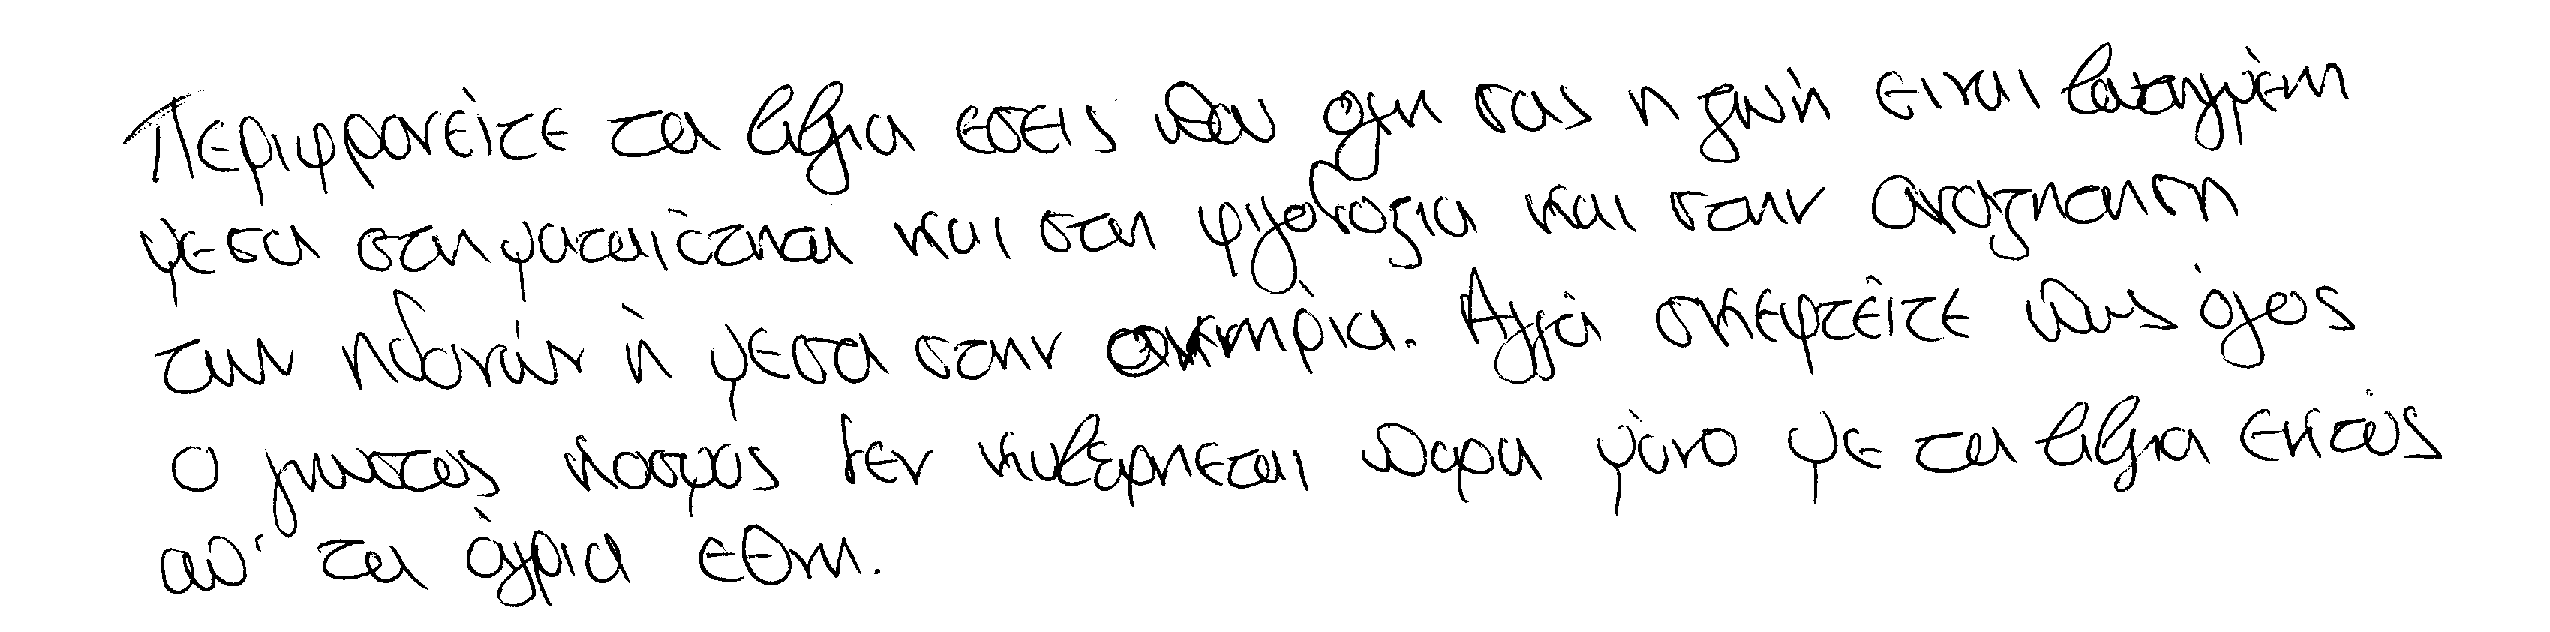 Περιφρονείτε τα βιβλια εσεις που ολη σας η ζωή ειναι βουτηγμένη
μεσα στη ματαιότητα και στη φιλοδοξια και στην αναζητηση
των ηδονών ή μεσα στην οκνηρία. Αλλά σκεφτείτε πως όλος
ο γνωστος κοσμος δεν κυβερνιεται παρα μόνο με τα βιβλια εκτός
απ' τα άγρια εθνη.